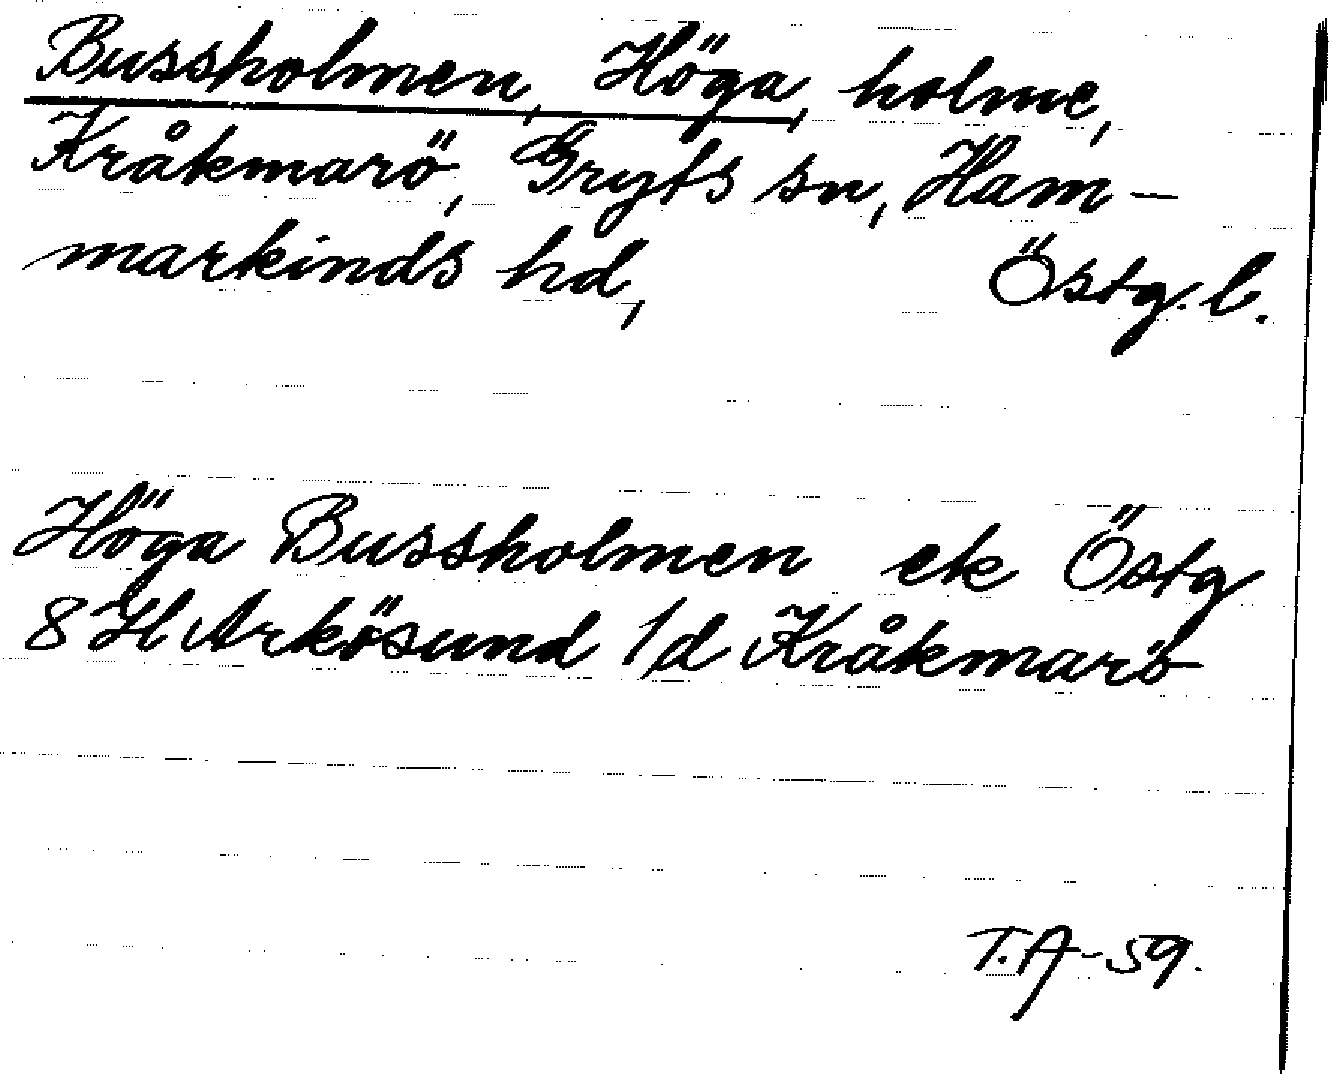 Bussholmen, Höga, holme,
Kråkmarö, Gryts sn, Ham-
markinds hd, Östg. l.
Höga Bussholmen ek Östg
8 H Arkösund 1/d Kråkmarö
T.A-59.